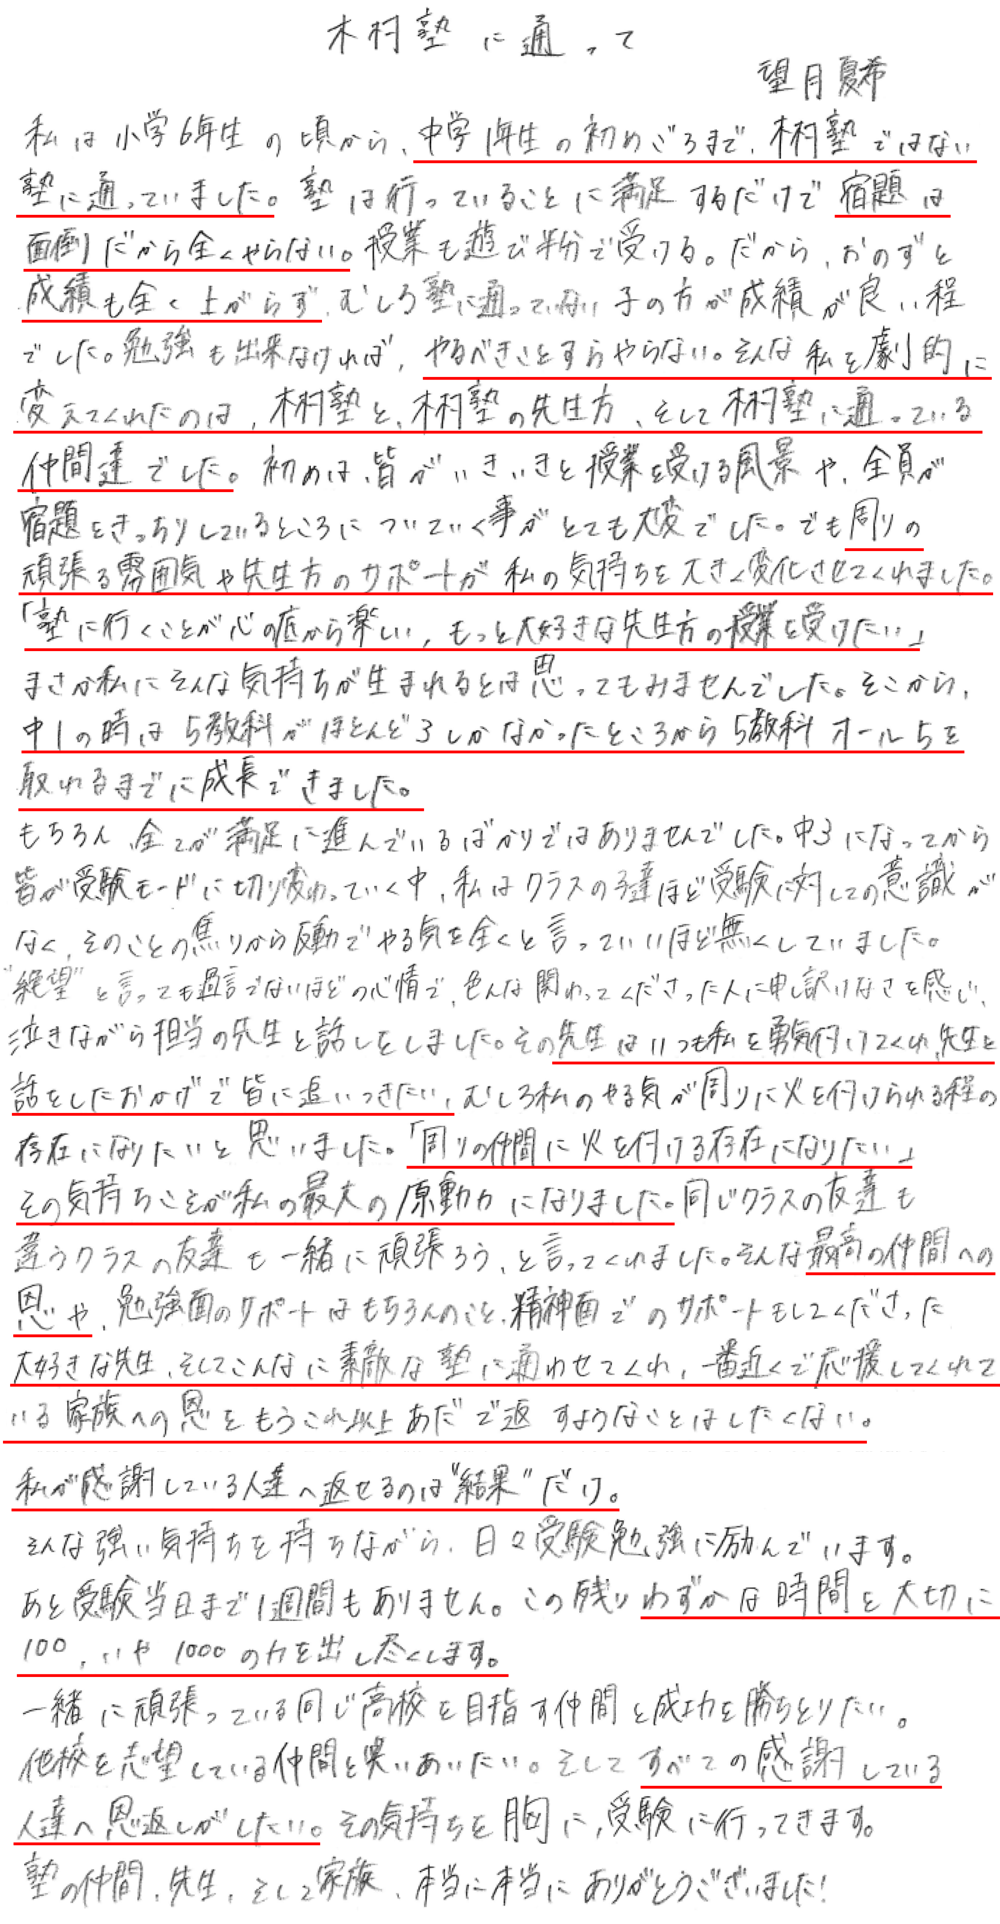 木村塾に通って
望月夏希
私は小学6年生の頃から、中学1年生の初めごろまで、木村塾ではない
塾に通っていました。塾は行っていることに満足するだけで宿題は
面倒だから全くやらない。授業も遊び半分で受ける。だから、おのずと
成績も全く上がらず、むしろ塾に通っていない子の方が成績が良い程
でした。勉強も出来なければ、やるべきことすらやらない。そんな私を劇的に
変えてくれたのは、木村塾と、木村塾の先生方、そして木村塾に通っている
仲間達でした。初めは、皆がいきいきと授業を受ける風景や、全員が
宿題をきっちりしているところについていく事がとても大変でした。でも周りの
頑張る雰囲気や先生方のサポートが私の気持ちを大きく変化させてくれました。
「塾に行くことが心の底から楽しい、もっと大好きな先生方の授業を受けたい」
まさか私にそんな気持ちが生まれるとは思ってもみませんでした。そこから、
中1の時は5教科がほとんど3しかなかったところから5教科オール5を
取れるまでに成長できました。
もちろん、全てが満足に進んでいるばかりではありませんでした。中3になってから
皆が受験モードに切り変わっていく中、私はクラスの子達ほど受験に対しての意識が
なく、そのことの焦りから反動でやる気を全くと言っていいほど無くしていました。
"絶望"と言っても過言でないほどの心情で、色んな関わってくださった人に申し訳なさを感じ、
泣きながら担当の先生と話しをしました。その先生はいつも私を勇気付けてくれ、先生と
話をしたおかげで皆に追いつきたい、むしろ私のやる気が周りに火を付けられる程の
存在になりたいと思いました。「周りの仲間に火を付ける存在になりたい」
その気持ちこそが私の最大の原動力になりました。同じクラスの友達も
違うクラスの友達も一緒に頑張ろう、と言ってくれました。そんな最高の仲間への
恩や、勉強面のサポートはもちろんのこと、精神面でのサポートもしてくださった
大好きな先生、そしてこんなに素敵な塾に通わせてくれ、一番近くで応援してくれて
いる家族への恩をもうこれ以上あだで返すようなことはしたくない。
私が感謝している人達へ返せるのは"結果"だけ。
そんな強い気持ちを持ちながら、日々受験勉強に励んでいます。
あと受験当日まで1週間もありません。この残りわずかな時間を大切に
100、いや1000の力を出し尽くします。
一緒に頑張っている同じ高校を目指す仲間と成功を勝ちとりたい。
他校を志望している仲間と笑いあいたい。そしてすべての感謝している
人達へ恩返しがしたい。その気持ちを胸に、受験に行ってきます。
塾の仲間、先生、そして家族、本当に本当にありがとうございました!